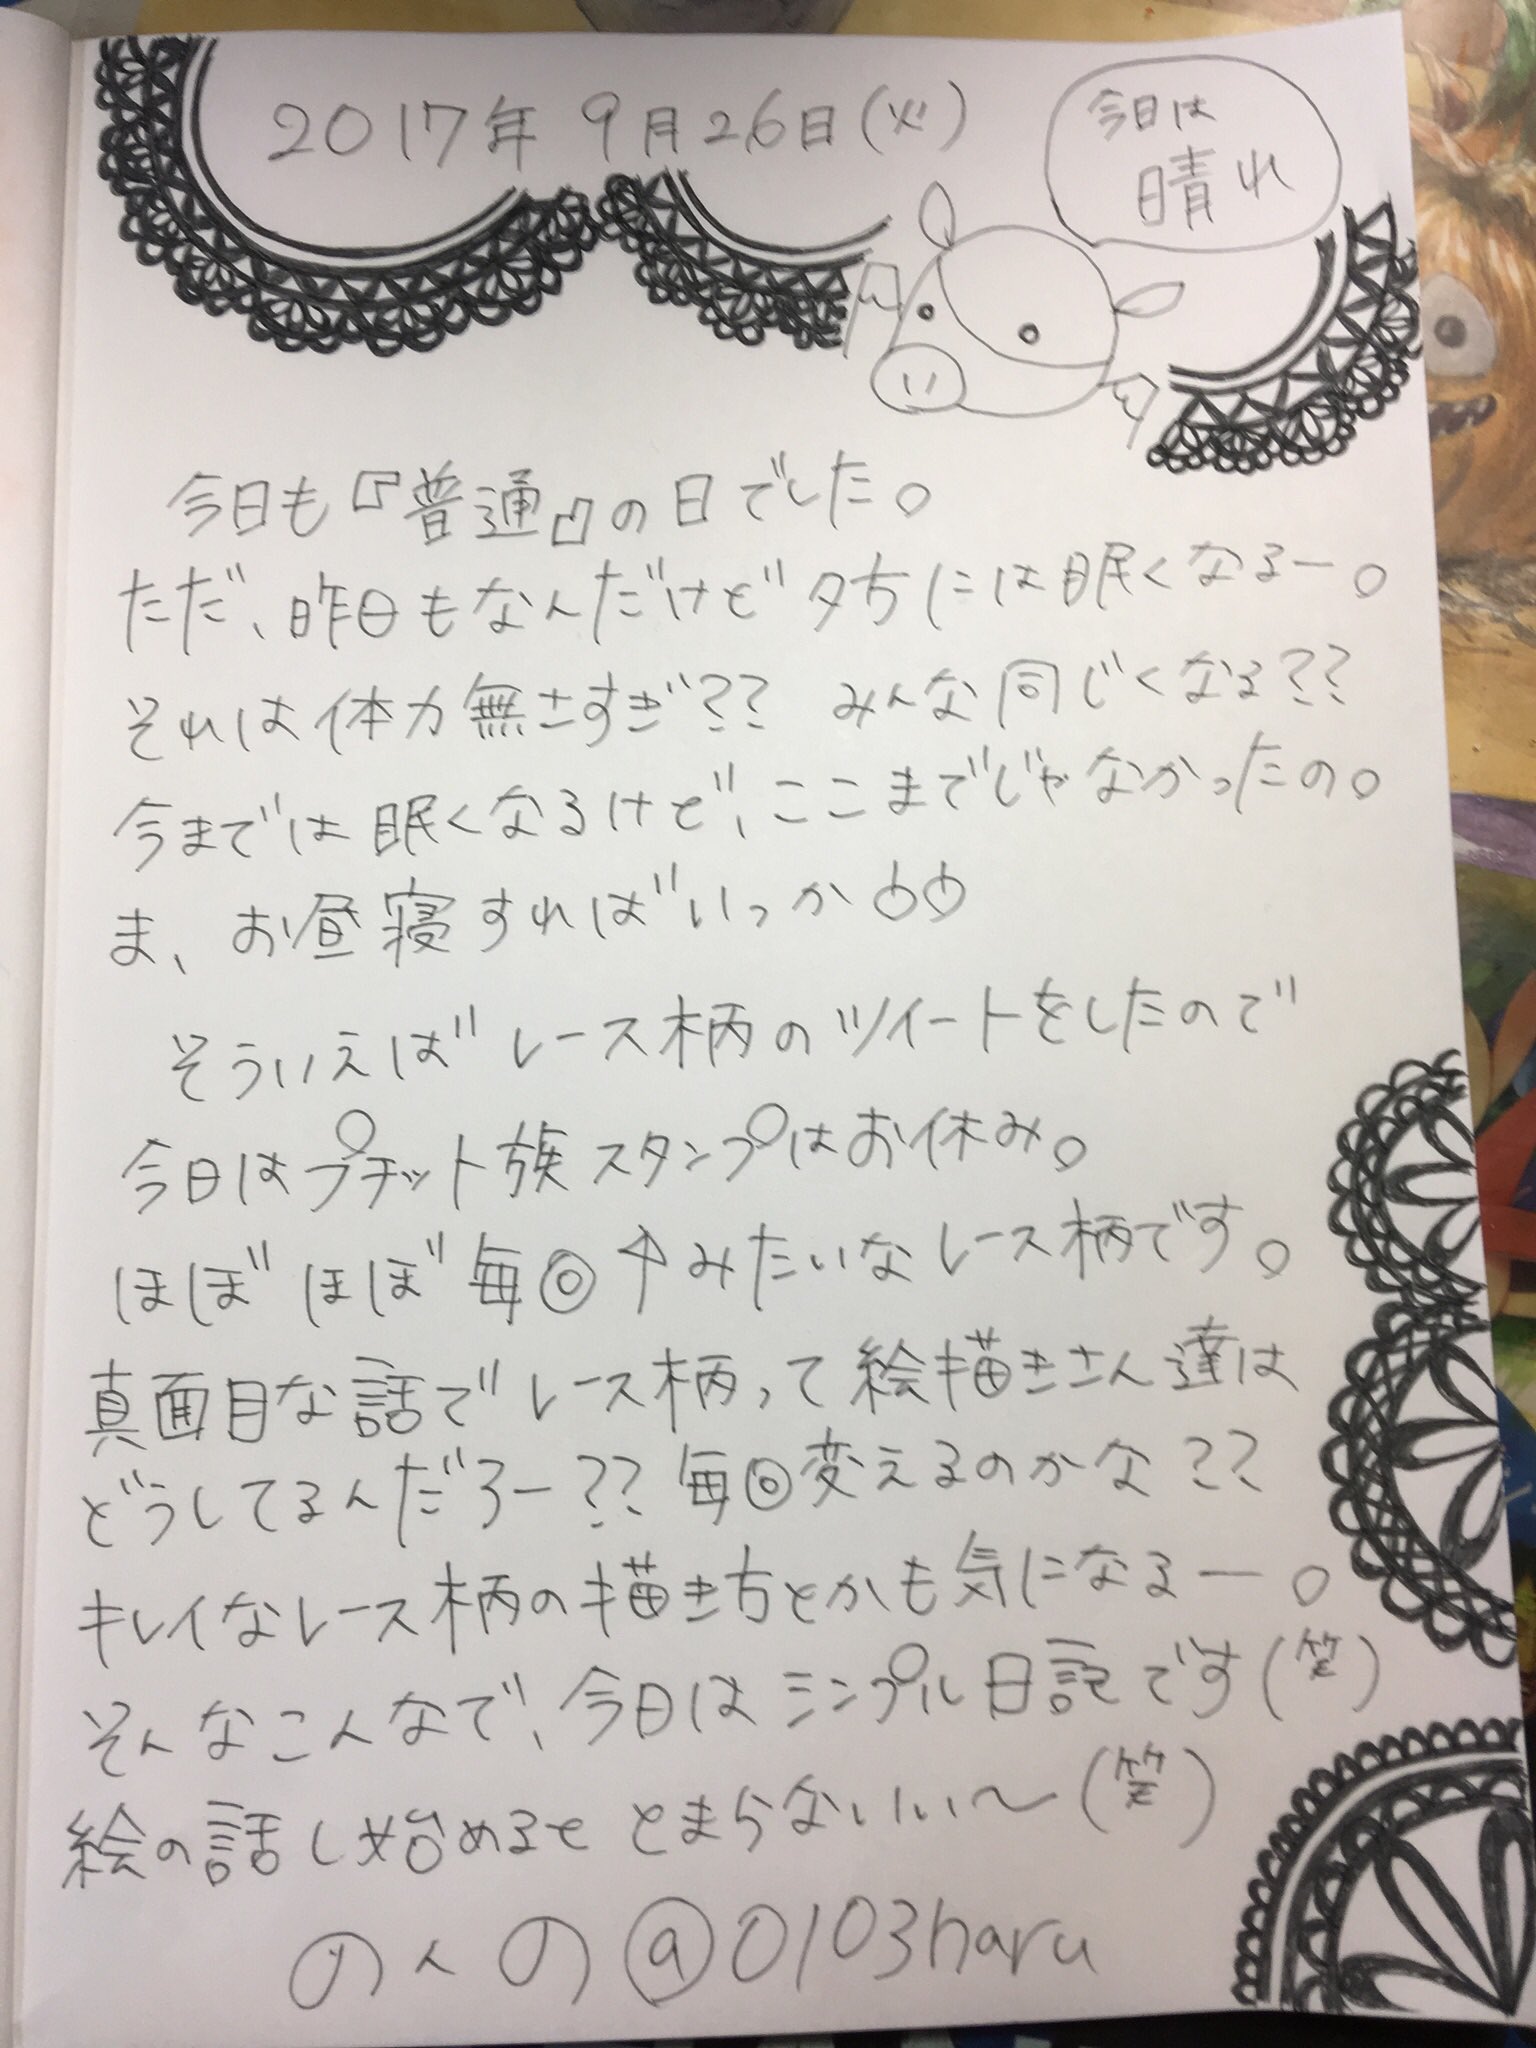 2017年 9月26日(火)
今日は
晴れ
今日も『普通』の日でした。
ただ、昨日もなんだけど夕方には眠くなるー。
それは体力無さすぎ?? みんな同じくなる??
今までは眠くなるけど、ここまでじゃなかったの。
ま、お昼寝すればいっか
そういえばレース柄のツイートをしたので
今日はプチット族スタンプはお休み。
ほぼほぼ毎回↑みたいなレース柄です。
真面目な話でレース柄って絵描きさん達は
どうしてるんだろー??毎回変えるのかな??
キレイなレース柄の描き方とかも気になるー。
そんなこんなで、今日はシンプル日記です(笑)
絵の話し始めるととまらないいい〜(笑)
のんの@0103haru